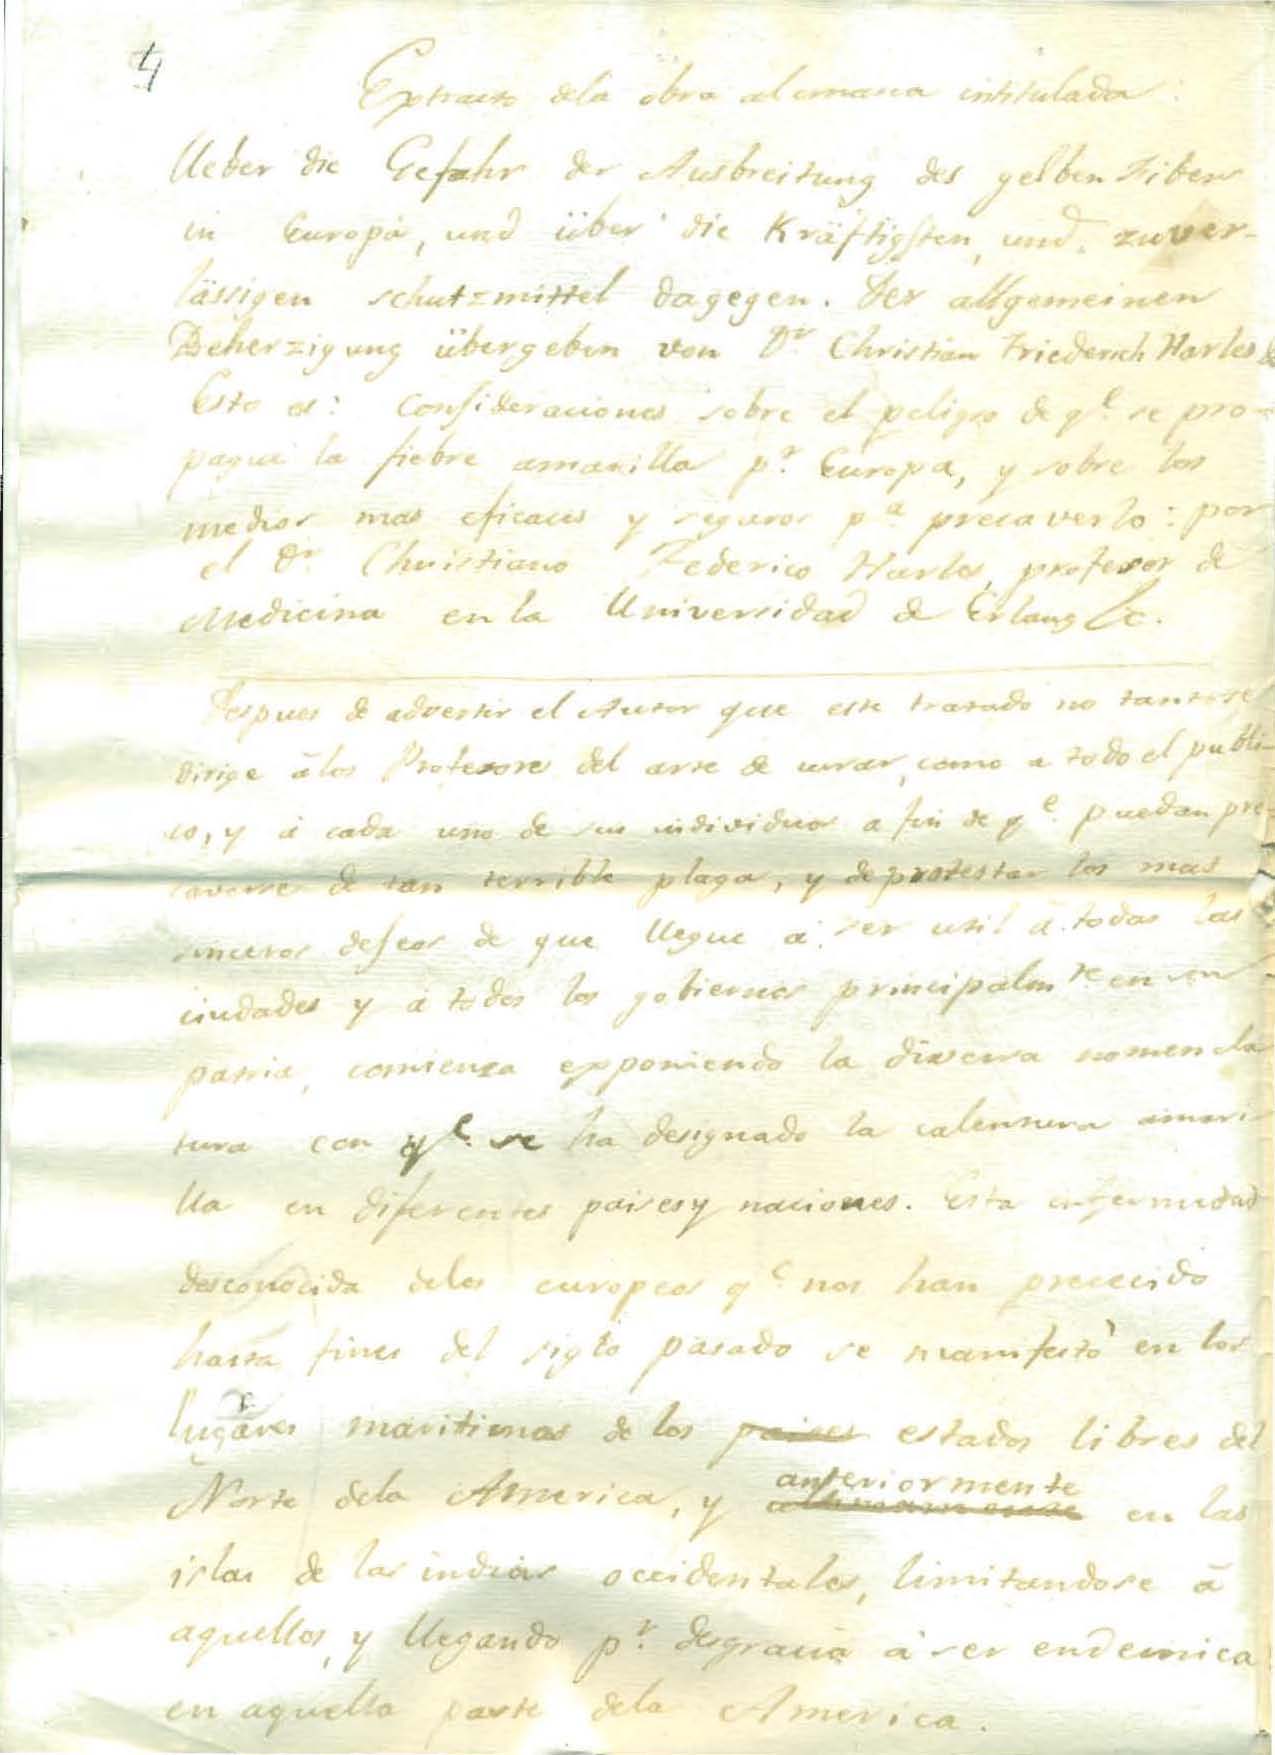 4
Extracto dela obra alemana intitulada:
Ueber die Gefahr der Ausbreitung des gelben Fibers
in Europa, und über die Kräftigsten, und zuver-
lässigen schutzmittel dagegen. Der allgemeinen
Beherzigung übergeben von Dr. Christian Friederich Harles &
Esto es: Consideraciones sobre el peligro de qe. se pro-
pague la fiebre amarilla pr. Europa, y sobre los
medios mas eficaces y seguros pa precaverlo: por
el Dr. Christiano Federico Harles, profesor de
Medicina en la Universidad de Erlang &c.
Despues de advertir el Autor que este tratado no tanto se
dirige á los Profesores del arte de curar, como a todo el publi-
co, y á cada uno de sus individuos a fin de qe. puedan pre-
caverse de tan terrible plaga, y de protestar los mas
sinceros deseos de que llegue á ser util á todas las
ciudades y á todos los gobiernos principalmte en su
patria, comienza exponiendo la diversa nomencla
tura con qe. se ha designado la calentura amari
lla en diferentes paises y naciones. Esta enfermedad
desconocida delos europeos qe nos han precedido
hasta fines del siglo pasado se manifestó en los
lugares maritimos de los paises estados libres del
Norte dela America, y anteriormente en las
islas de las indias occidentales, limitandose á
aquellos, y llegando pr. desgracia á ser endemica
en aquella parte dela America.